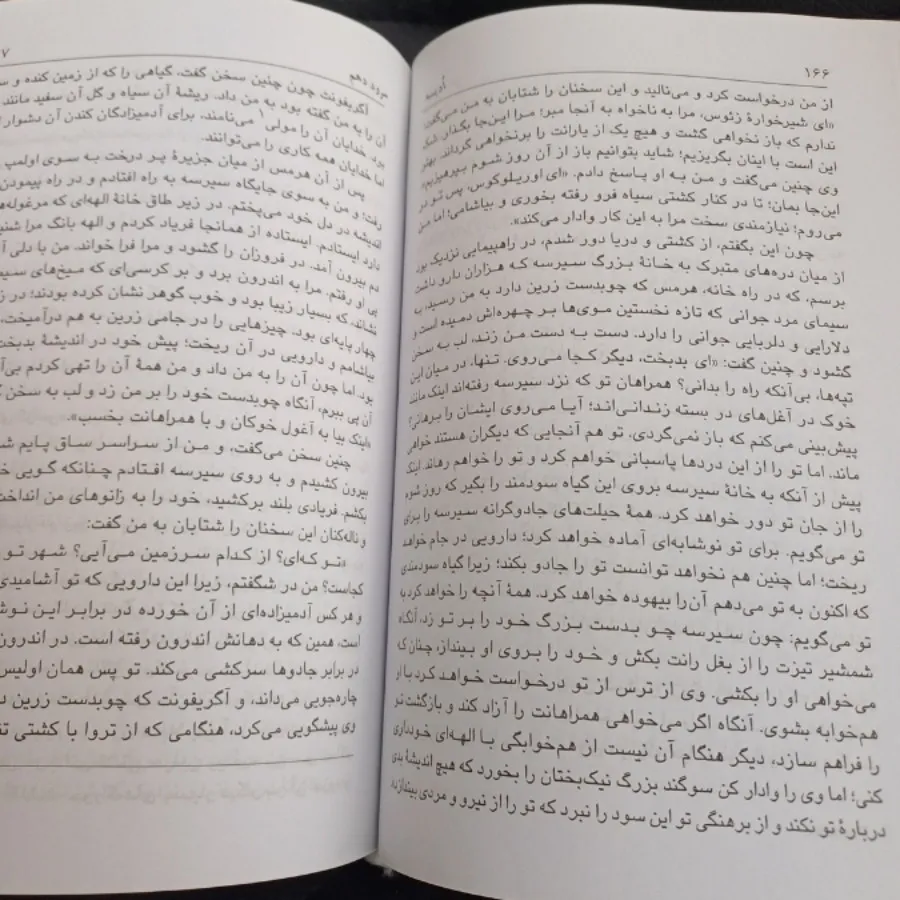 ۱۶۶
اُدیسه
از من درخواست کرد و می‌نالید و این سخنان را شتابان به من می‌گفت:
«ای شیرخوارهٔ زئوس، مرا به ناخواه به آنجا مبر؛ مرا این‌جا بگذار. شک
ندارم که باز نخواهی گشت و هیچ یک از یارانت را برنخواهی گرداند. بهتر
این است با اینان بگریزیم؛ شاید بتوانیم باز از آن روز شوم بپرهیزیم»
وی چنین می‌گفت و من به او پاسخ دادم. «ای اوریلوکوس، پس تو در
این‌جا بمان؛ تا در کنار کشتی سیاه فرو رفته بخوری و بیاشامی؛ اما من
می‌روم؛ نیازمندی سخت مرا به این کار وادار می‌کند».
چون این بگفتم، از کشتی و دریا دور شدم، در راهپیمایی نزدیک بود
از میان دره‌های متبرک به خانهٔ بزرگ سیرسه که هزاران دارو داشت
برسم، که در راه خانه، هرمس که چوبدست زرین دارد به من رسید، به
سیمای مرد جوانی که تازه نخستین موی‌ها بر چهره‌اش دمیده است و
دلارایی و دلربایی جوانی را دارد. دست به دست من زند، لب به سخن
گشود و چنین گفت: «ای بدبخت، دیگر کجا می‌روی. تنها، در میان این
تپه‌ها، بی‌آنکه راه را بدانی؟ همراهان تو که نزد سیرسه رفته‌اند اینک مانند
خوک در آغل‌های در بسته زندانی‌اند؛ آیا می‌روی ایشان را برهانی؟
پیش‌بینی می‌کنم که باز نمی‌گردی. تو هم آنجایی که دیگران هستند خواهی
ماند. اما تو را از این دردها پاسبانی خواهم کرد و تو را خواهم رهاند. اینک
پیش از آنکه به خانهٔ سیرسه بروی این گیاه سودمند را بگیر که روز شوم
را از جان تو دور خواهد کرد. همهٔ حیلت‌های جادوگرانه سیرسه را برای
تو می‌گویم. برای تو نوشابه‌ای آماده خواهد کرد؛ دارویی در جام خواهد
ریخت؛ اما چنین هم نخواهد توانست تو را جادو بکند؛ زیرا گیاه سودمندی
که اکنون به تو می‌دهم آن‌را بیهوده خواهد کرد. همهٔ آنچه را خواهد کرد به
تو می‌گویم: چون سیرسه چو بدست بزرگ خود را بر تو زد، آنگاه
شمشیر تیزت را از بغل رانت بکش و خود را بروی او بینداز، چنان که
می‌خواهی او را بکشی. وی از ترس از تو درخواست خواهد کرد با او
هم‌خوابه بشوی. آنگاه اگر می‌خواهی همراهانت را آزاد کند و بازگشت تو
را فراهم سازد، دیگر هنگام آن نیست از هم‌خوابگی با الهه‌ای خودداری
کنی؛ اما وی را وادار کن سوگند بزرگ نیک‌بختان را بخورد که هیچ اندیشهٔ بدی
دربارهٔ تو نکند و از برهنگی تو این سود را نبرد که تو را از نیرو و مردی بیندازد».
سرود دهم
۷
آگریفونت چون چنین سخن گفت، گیاهی را که از زمین کنده و
آن را به من گفته بود به من داد. ریشهٔ آن سیاه و گل آن سفید مانند
بود. خدایان آن را مولی۱ می‌نامند. برای آدمیزادگان کندن آن دشوار
اما خدایان همه کاری را می‌توانند.
پس از آن هرمس از میان جزیرهٔ پر درخت به سوی اولمپ
رفت؛ و من به سوی جایگاه سیرسه به راه افتادم و در راه پیمودن
اندیشه در دل خود می‌پختم. در زیر طاق خانهٔ الهه‌ای که مرغوله‌های
دارد ایستادم. ایستاده از همانجا فریاد کردم و الهه بانگ مرا
دم بیرون آمد. در فروزان را گشود و مرا فرا خواند. من با دلی
پی او رفتم. مرا به اندرون برد و بر کرسی‌ای که میخ‌های
نشاند، که بسیار زیبا بود و خوب گوهر نشان کرده بودند؛ در
چهار پایه‌ای بود. چیزهایی را در جامی زرین به هم درآمیخت،
بیاشامم و دارویی در آن ریخت؛ پیش خود در اندیشهٔ
بود. اما چون آن را به من داد و من همهٔ آن را تهی کردم
آن پی ببرم، آنگاه چوبدست خود را بر من زد و لب به سخن
«اینک بیا به آغول خوکان و با همراهانت بخسب».
چنین سخن می‌گفت، و من از سراسر ساق پایم
بیرون کشیدم و به روی سیرسه افتادم چنانکه گویی
بکشم. فریادی بلند برکشید، خود را به زانوهای من
و ناله‌کنان این سخنان را شتابان به من گفت:
«تو که‌ای؟ از کدام سرزمین می‌آیی؟ شهر تو
کجاست؟ من در شگفتم، زیرا این دارویی که تو
و هر کس آدمیزاده‌ای از آن خورده در برابر این
است، همین که به دهانش اندرون رفته است. در
در برابر جادوها سرکشی می‌کند. تو پس همان
چاره‌جویی می‌داند، و آگریفونت که چوبدست زرین
وی پیشگویی می‌کرد، هنگامی که از تروا با کشتی